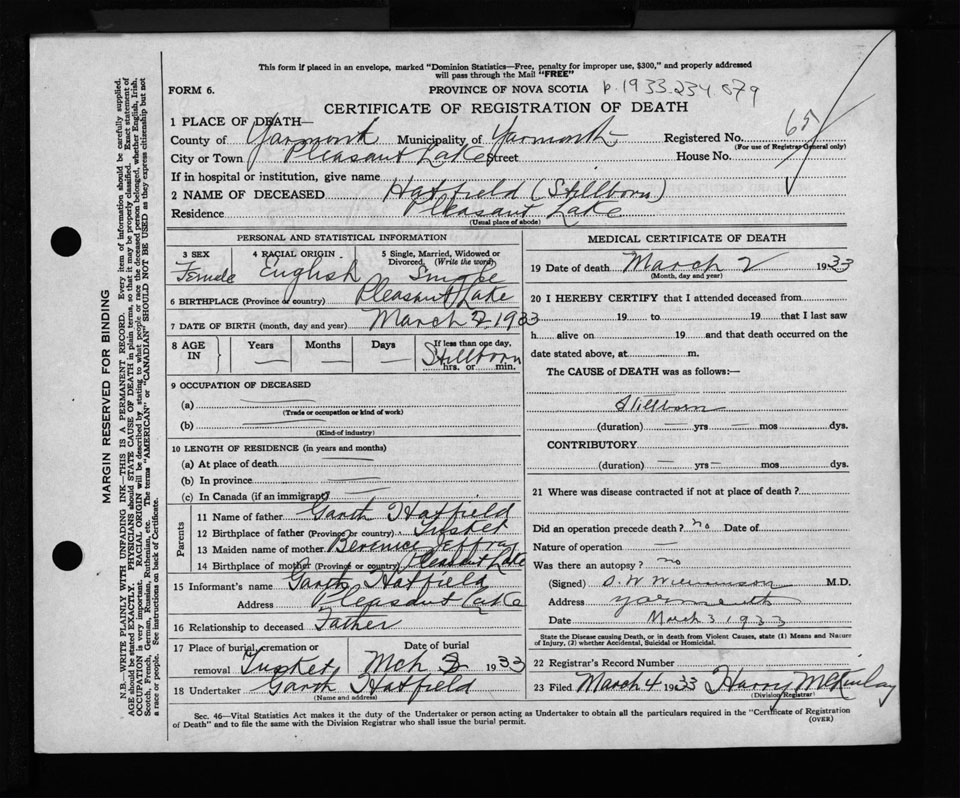 This form if placed in an envelope, marked "Dominion Statistics—Free, penalty for improper use, $300," and properly addressed
will pass through the Mail "FREE"
FORM 6. PROVINCE OF NOVA SCOTIA 1933.234 879
CERTIFICATE OF REGISTRATION OF DEATH
1 PLACE OF DEATH—
County of Yarmouth Municipality of Yarmouth Registered No. 65
(For use of Registrar General only)
City or Town Pleasant Lake Street House No.
If in hospital or institution, give name
2 NAME OF DECEASED Hatfield (Stillborn)
Residence Pleasant Lake
(Usual place of abode)
PERSONAL AND STATISTICAL INFORMATION
3 SEX 4 RACIAL ORIGIN 5 Single, Married, Widowed or
Divorced (Write the word)
Female English Single
6 BIRTHPLACE (Province or country) Pleasant Lake
7 DATE OF BIRTH (month, day and year) March 2 1933
8 AGE IN Years Months Days If less than one day,
Stillborn
hrs. or min.
9 OCCUPATION OF DECEASED
(a)
(Trade or occupation or kind of work)
(b)
(Kind of industry)
10 LENGTH OF RESIDENCE (in years and months)
(a) At place of death
(b) In province
(c) In Canada (if an immigrant)
Parents
11 Name of father Garth Hatfield
12 Birthplace of father (Province or country) Tusket
13 Maiden name of mother Berenice Jeffray
14 Birthplace of mother (Province or country) Pleasant Lake
15 Informant's name Garth Hatfield
Address Pleasant Lake
16 Relationship to deceased Father
17 Place of burial, cremation or Date of burial
removal Tusket Mch 3 1933
18 Undertaker Garth Hatfield
(Name and address)
MEDICAL CERTIFICATE OF DEATH
19 Date of death March 2 1933
(Month, day and year)
20 I HEREBY CERTIFY that I attended deceased from
19 to 19 that I last saw
h alive on 19 and that death occurred on the
date stated above, at m.
The CAUSE of DEATH was as follows:—
Stillborn
(duration) — yrs — mos dys.
CONTRIBUTORY
(duration) — yrs — mos dys.
21 Where was disease contracted if not at place of death?
Did an operation precede death? no Date of
Nature of operation —
Was there an autopsy? no
(Signed) M.D.
Address Yarmouth
Date March 3 1933
State the Disease causing Death, or in death from Violent Causes, state (1) Means and Nature
of Injury, (2) whether Accidental, Suicidal or Homicidal.
22 Registrar's Record Number
23 Filed March 4 1933 Harry McKinlay
(Division Registrar)
Sec. 46—Vital Statistics Act makes it the duty of the Undertaker or person acting as Undertaker to obtain all the particulars required in the "Certificate of Registration
of Death" and to file the same with the Division Registrar who shall issue the burial permit. (OVER)
MARGIN RESERVED FOR BINDING
N.B.—WRITE PLAINLY WITH UNFADING INK—THIS IS A PERMANENT RECORD. Every item of information should be carefully supplied.
AGE should be stated EXACTLY. PHYSICIANS should STATE CAUSE OF DEATH in plain terms, so that it may be properly classified. Exact statement of
OCCUPATION is very important. RACIAL ORIGIN will be described by stating to what people or race the deceased person belonged, whether English, Irish,
Scotch, French, German, Russian, Ruthenian, etc. The terms "AMERICAN" or "CANADIAN" SHOULD NOT BE USED as they express citizenship but not
a race or people. See instructions on back of Certificate.